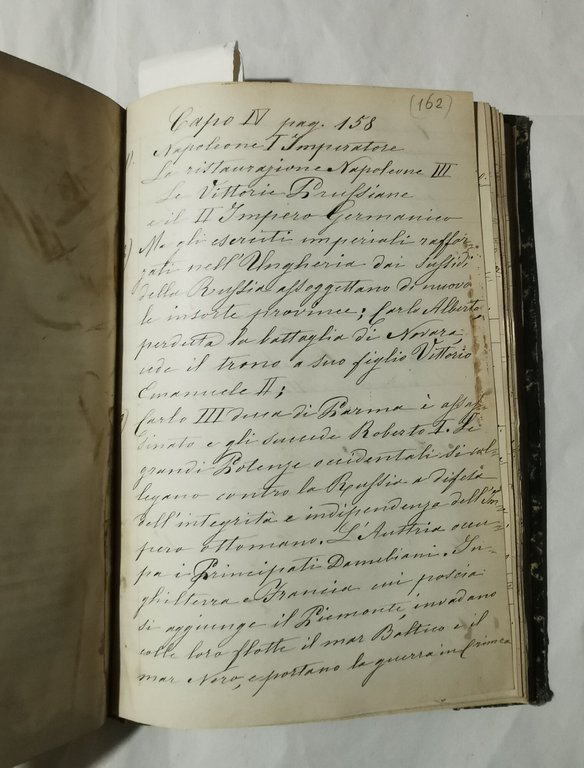 (162)
Capo IV pag. 158
Napoleone I Imperatore
La ristaurazione Napoleone III
Le Vittorie Prussiane
e il II Impero Germanico
Ma gli eserciti imperiali raffor-
zati nell'Ungheria dai sussidi
della Russia assoggettano di nuovo
le insorte province; Carlo Alberto
perduta la battaglia di Novara,
cede il trono a suo figlio Vittorio
Emanuele II;
Carlo III duca di Parma è assas-
sinato e gli succede Roberto I. Le
grandi Potenze occidentali si col-
legano contro la Russia a difesa
dell'integrità e indipendenza dell'Im-
pero ottomano. L'Austria occu-
pa i Principati Danubiani. In-
ghilterra e Francia cui poscia
si aggiunge il Piemonte invadono
colle loro flotte il mar Baltico e il
mar Nero, e portano la guerra in Crimea